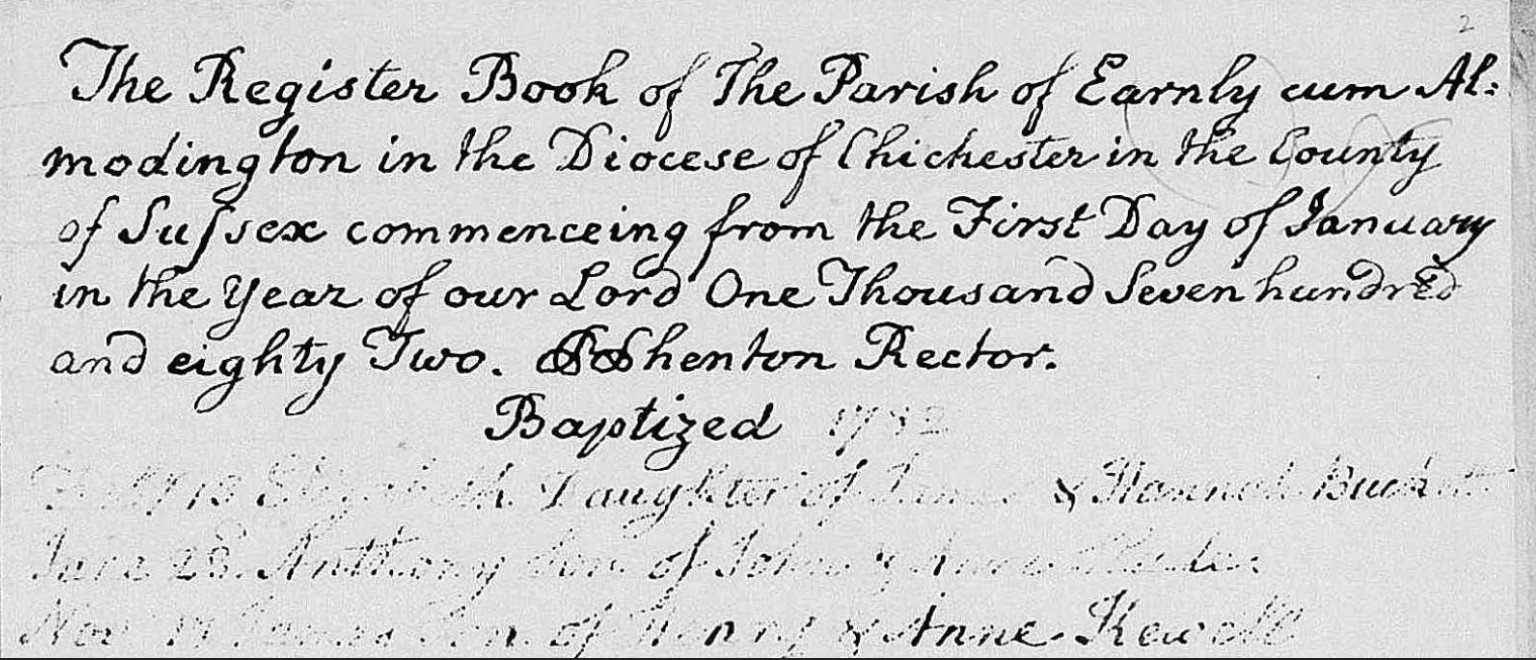 2
The Register Book of The Parish of Earnly cum Al:
modington in the Diocese of Chichester in the County
of Suſsex commenceing from the First Day of January
in the Year of our Lord One Thousand Seven hundred
and eighty Two. Shenton Rector.
Baptized 1782
Elizabeth Daughter of James & Hannah
June 28 Anthony Son of John &
Nov James Son of Henry & Anne Kewell